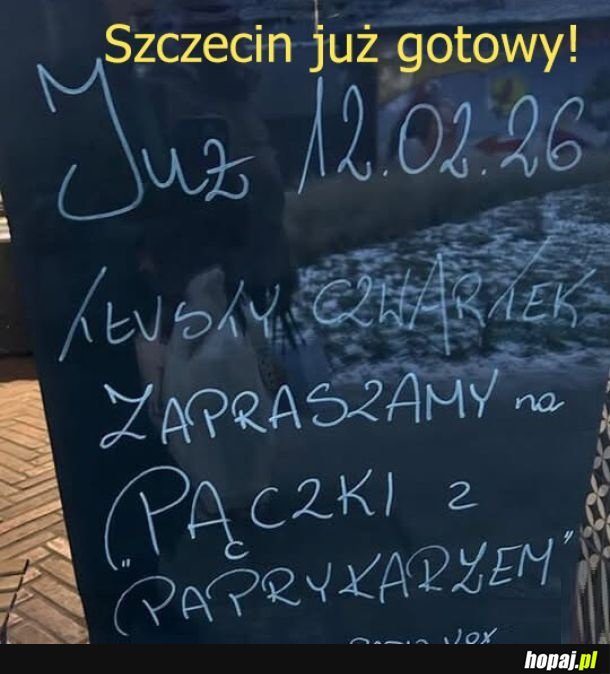 Szczecin już gotowy!
Już 12.02.26
TŁUSTY CZWARTEK
ZAPRASZAMY na
„PĄCZKI z
PAPRYKARZEM"
VOX
hopaj.pl